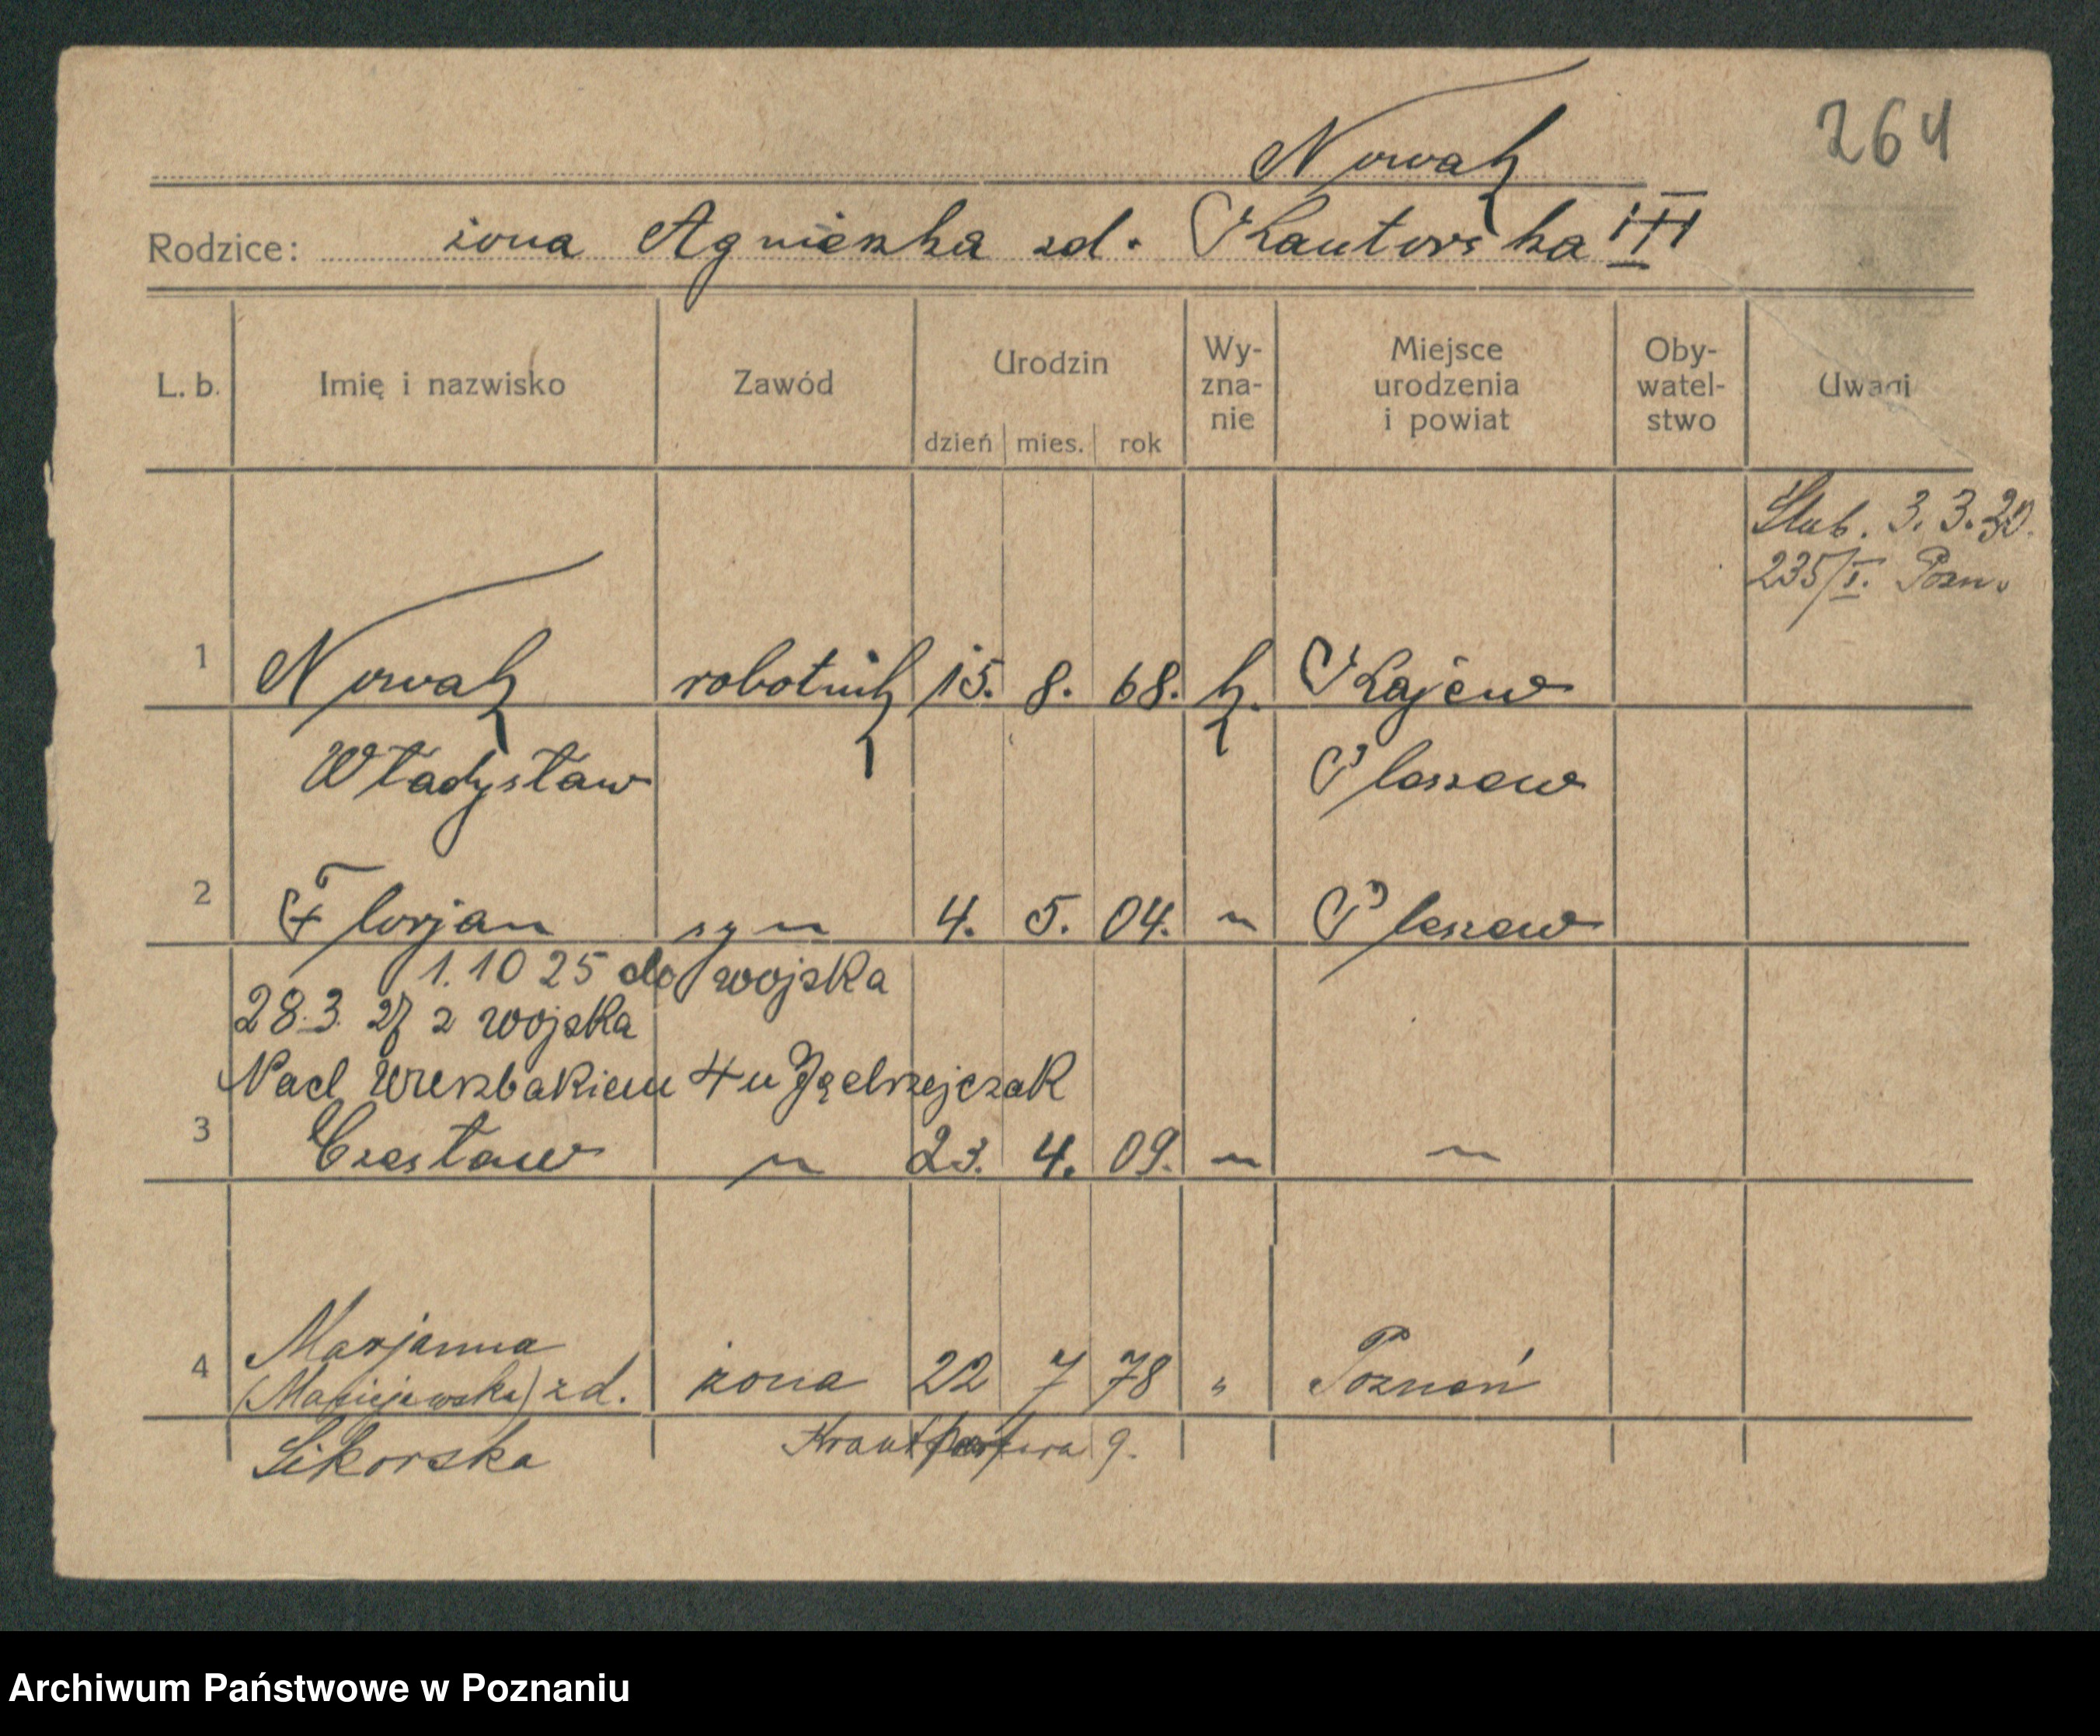 264
Nowak
Rodzice: żona Agnieszka zd. Kantorska III
L. b. Imię i nazwisko Zawód Urodzin dzień mies. rok Wy-zna-nie Miejsce urodzenia i powiat Oby-watel-stwo Uwagi
Ślub. 3. 3. 30.
235/I. Pozn.
1 Nowak robotnik 15. 8. 68. k. Kajew
Władysław Pleszew
2 Florjan syn 4. 5. 04. " Pleszew
1.10 25 do wojska
28.3. 27 z wojska
Nad Wierzbakiem 4 u Jędrzejczak
3 Czesław " 23. 4. 09. " "
Marjanna
4 (Maciejewska) zd. żona 22 7 78 " Poznań
Sikorska 9.
Archiwum Państwowe w Poznaniu